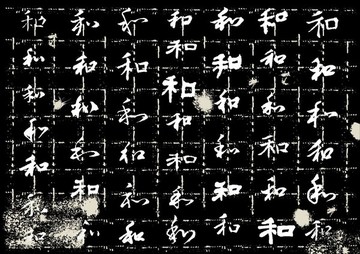 和和和和和和
和和和和和和
和和和和和和
和和和和和和和
和和和和和和
和和和和和和
和和和和和和和